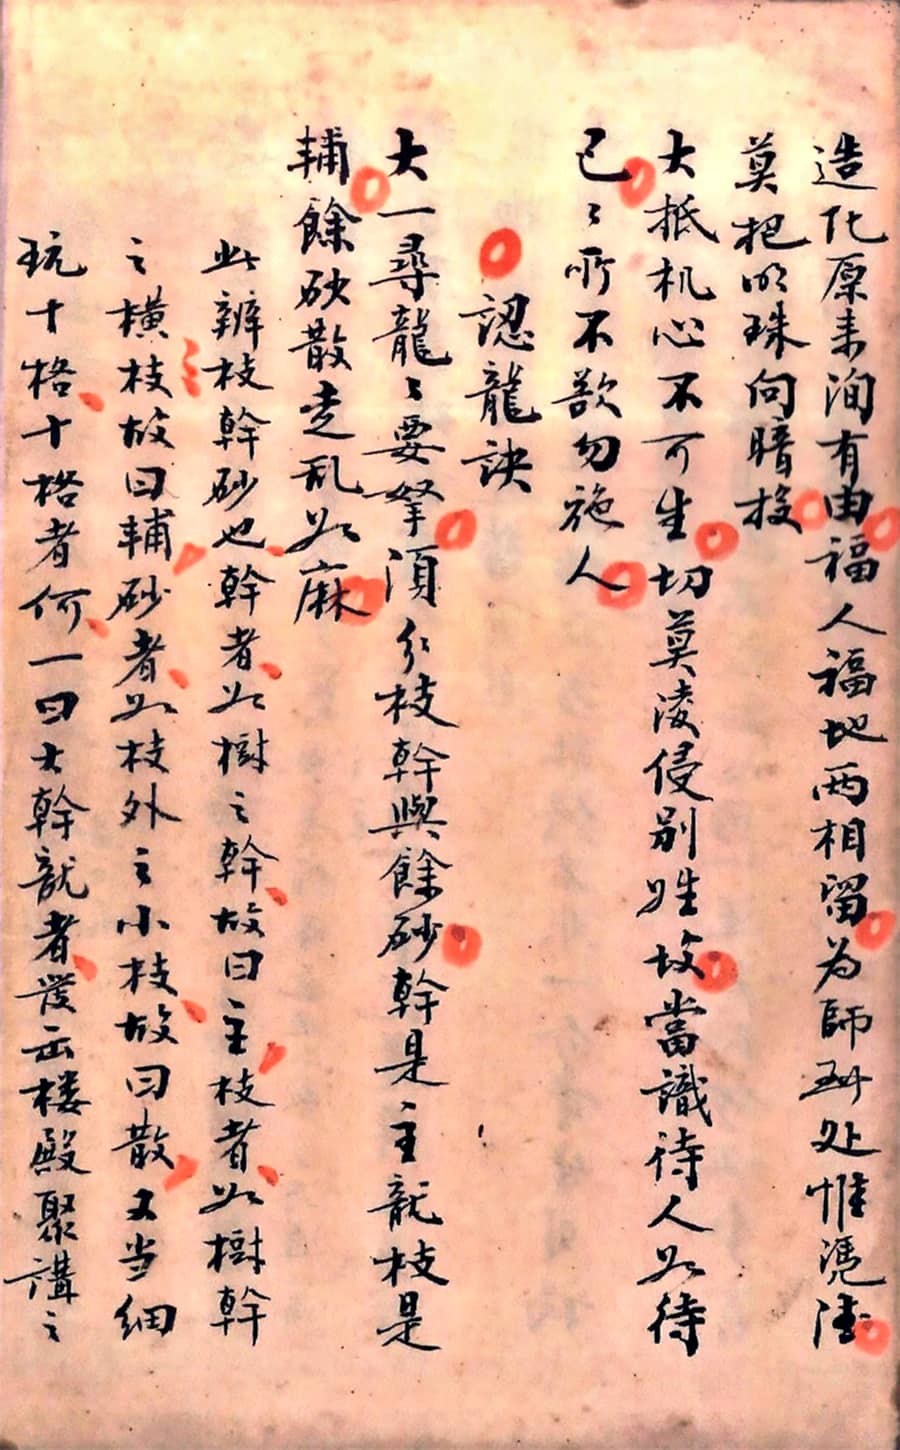 造化原来洵有由福人福地两相留为師到处惟凭德
莫把明珠向暗投
大抵机心不可生切莫凌侵别姓坟當識待人如待
已〻所不欲勿施人
認龍訣
大一尋龍〻要拏須分枝幹與餘砂幹是主龍枝是
輔餘砂散走乱如麻
此辨枝幹砂也幹者如樹之幹故曰主枝者如樹幹
之横枝故曰輔砂者如枝外之小枝故曰散又当细
玩十格十格者何一曰大幹龍者發出楼殿聚講之